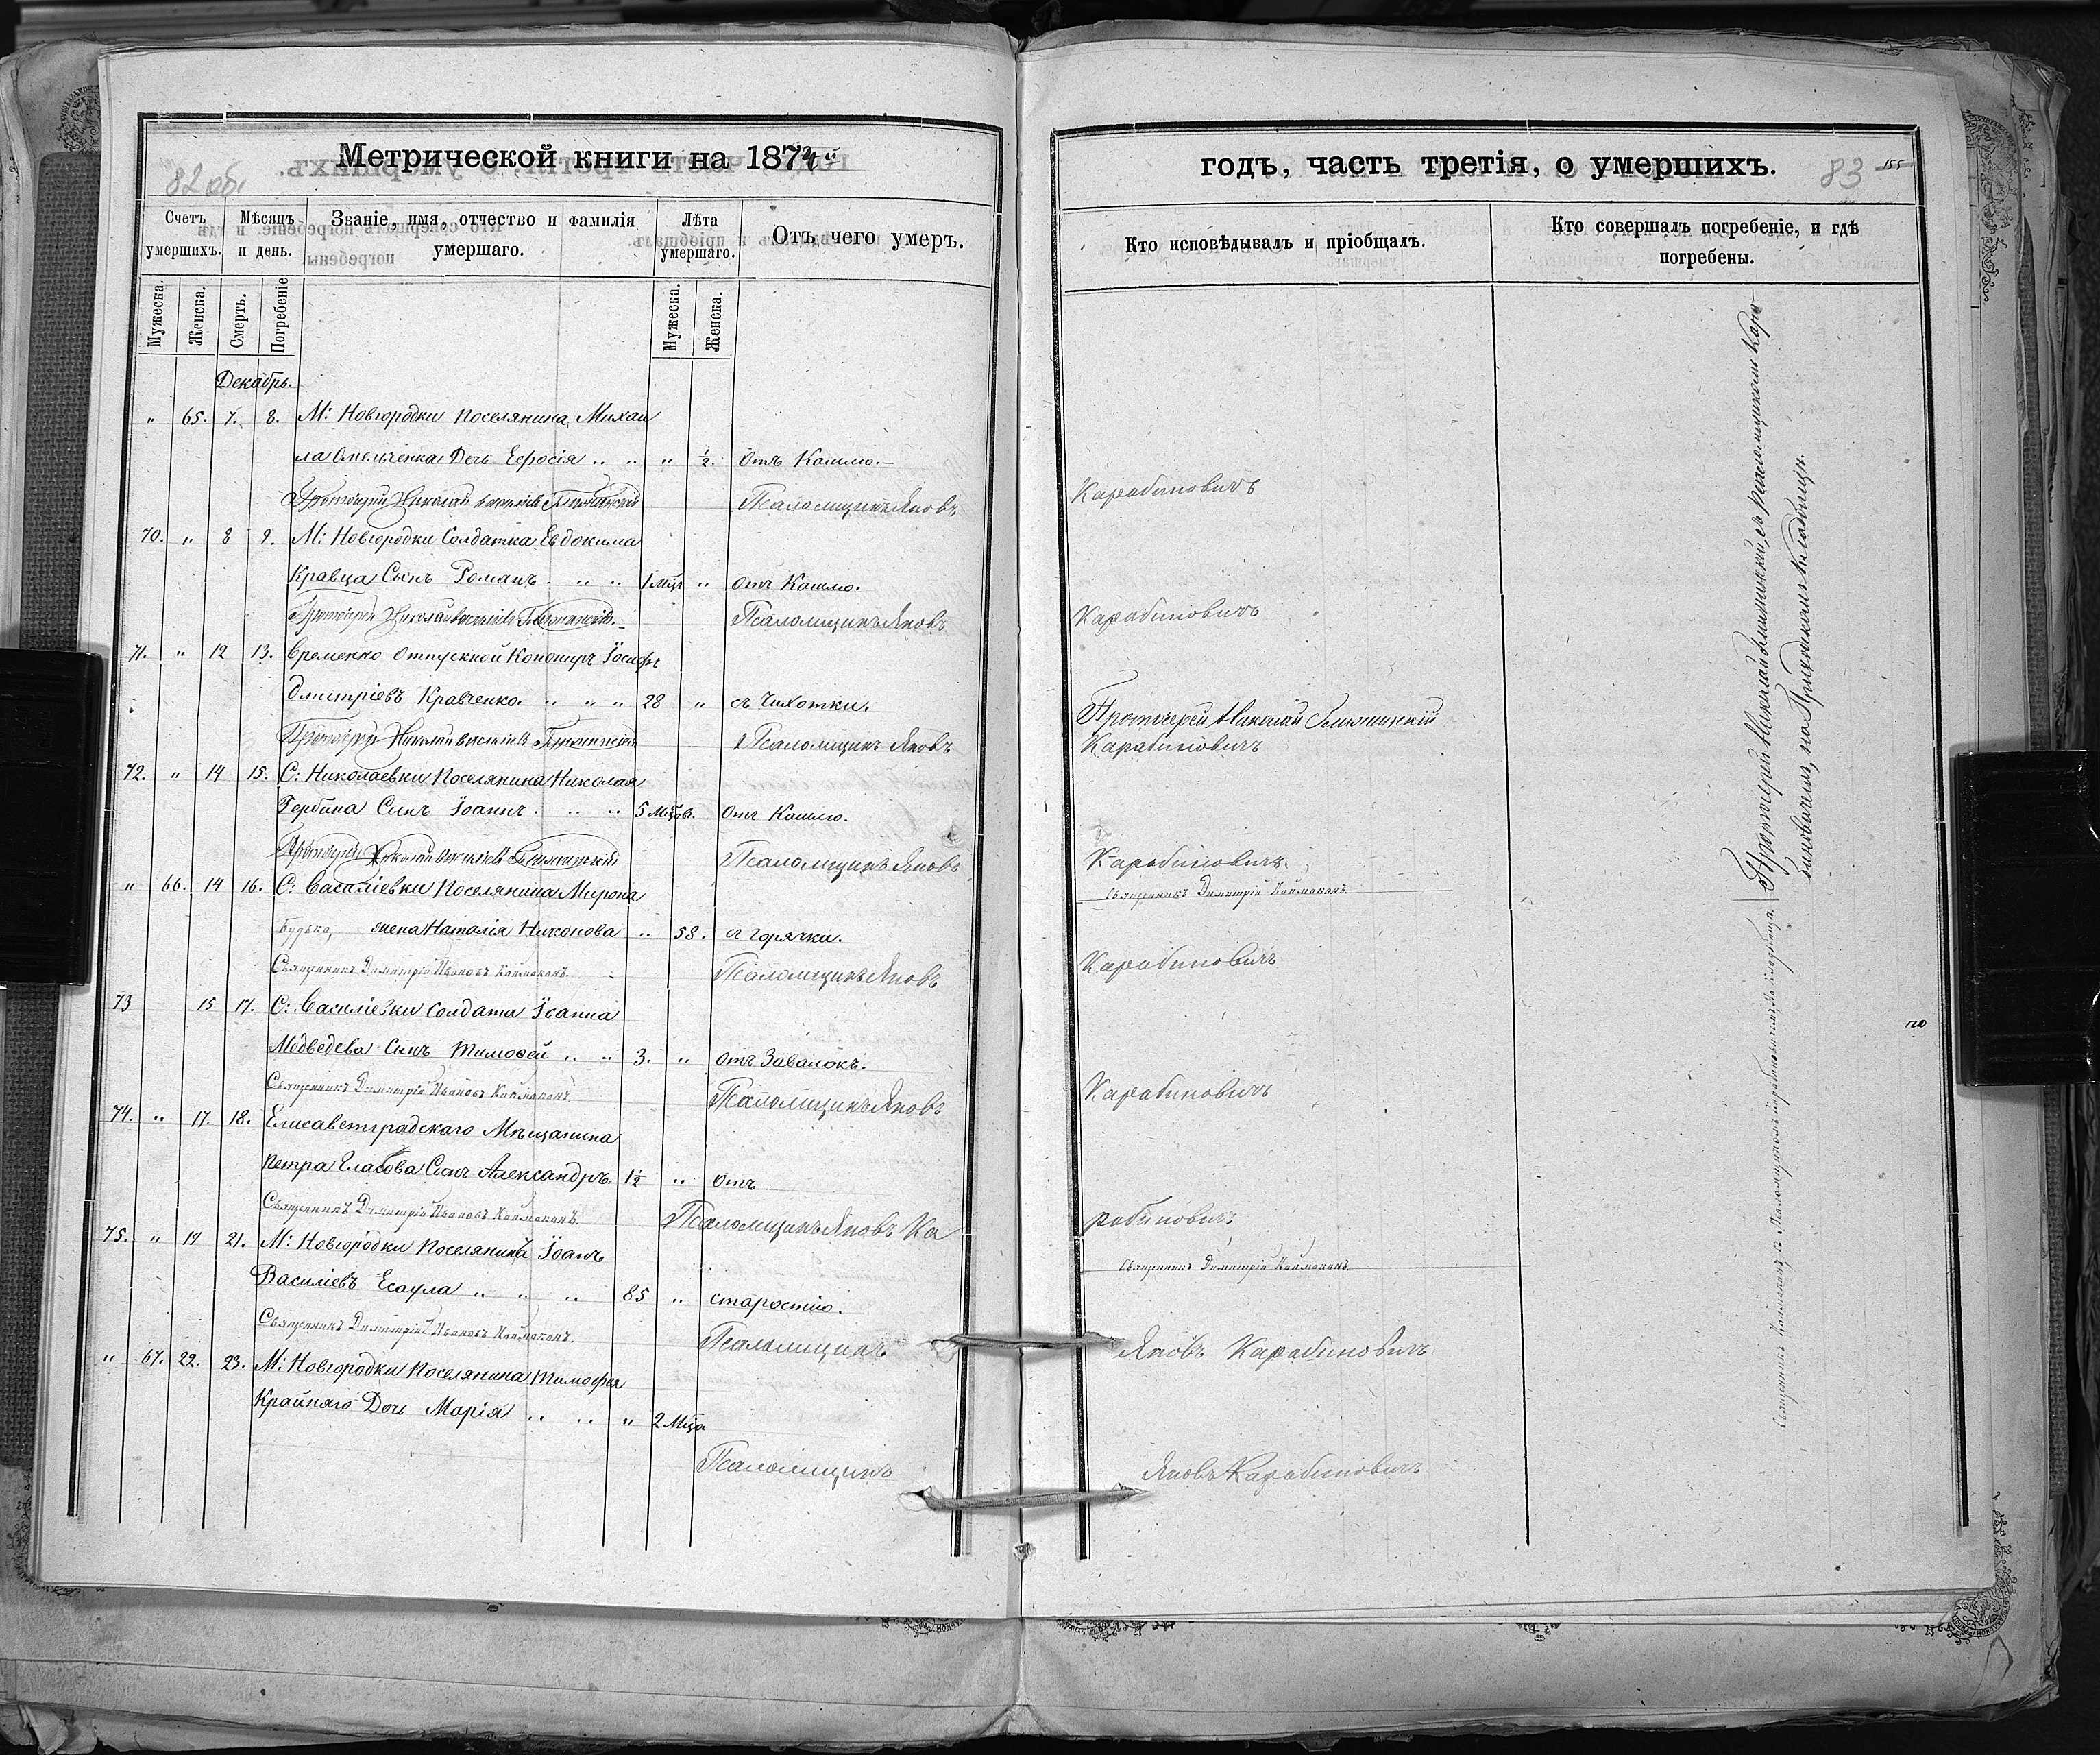 Метрической книги на 1874
82 об.
Счетъ умершихъ.
Мѣсяцъ и день.
Званіе, имя, отчество и фамилія умершаго.
Лѣта умершаго.
Отъ чего умеръ.
Мужеска.
Женска.
Смерть.
Погребеніе
Мужеска.
Женска.
Декабрь.
" 65. 7. 8. М: Новгородки поселянина Михаи
ла Омельченка Дочь Ефросія " ½. Отъ Кашлю.
Протоіерей Николай Псаломщикъ Яковъ
70. " 8 9. М: Новгородки Солдатка Евдокима
Кравца Сынъ Романъ 1 Мцъ " Отъ Кашлю.
Протоіерей Николай Псаломщикъ Яковъ
71. " 12 13. Временно Отпускной Конониръ Іосифъ
Дмитріевъ Кравченко. 28 " съ Чихотки.
Протоіерей Николай Псаломщикъ Яковъ
72. " 14 15. С: Николаевки Поселянина Николая
Гербина Сынъ Іоаннъ 5 Мцовъ. Отъ Кашлю.
Протоіерей Николай Псаломщикъ Яковъ
" 66. 14 16. С: Василіевки Поселянина Мирона
Будька, жена Наталія Никонова " 58. съ горячки.
Священникъ Димитрій Ивановъ Каймаканъ. Псаломщикъ Яковъ
73 15 17. С: Василіевки Солдата Іоанна
Медведева Сынъ Тимоѳей 3. " отъ Завалокъ.
Священникъ Димитрій Ивановъ Каймаканъ. Псаломщикъ Яковъ
74. " 17. 18. Елисаветградскаго Мѣщанина
Петра Власова Сынъ Александръ. 1½ " отъ
Священникъ Димитрій Ивановъ Каймаканъ. Псаломщикъ Яковъ Ка
75. " 19 21. М: Новгородки Поселянинъ Іоанъ
Василіевъ Есаула 85 " старостію.
Священникъ Димитрій Ивановъ Каймаканъ. Псаломщикъ
" 67. 22. 23. М: Новгородки Поселянина Тимофея
Крайняго Дочь Марія " 2 Мца
Псаломщикъ
годъ, часть третія, о умершихъ.
83
155
Кто исповѣдывалъ и пріобщалъ.
Кто совершалъ погребеніе, и гдѣ погребены.
Карабиновичъ
Карабиновичъ
Протоіерей Николай
Карабиновичъ
Карабиновичъ.
Священникъ Димитрій Каймаканъ.
Карабиновичъ
Карабиновичъ
рабиновичъ
Священникъ Димитрій Каймаканъ.
Яковъ Карабиновичъ
Яковъ Карабиновичъ
Протоіерей Николай съ псаломщикомъ Кара
биновичемъ, на Приходскомъ кладбищѣ.
Священникъ Каймаканъ съ Псаломщикомъ Карабиновичемъ на кладбищѣ.